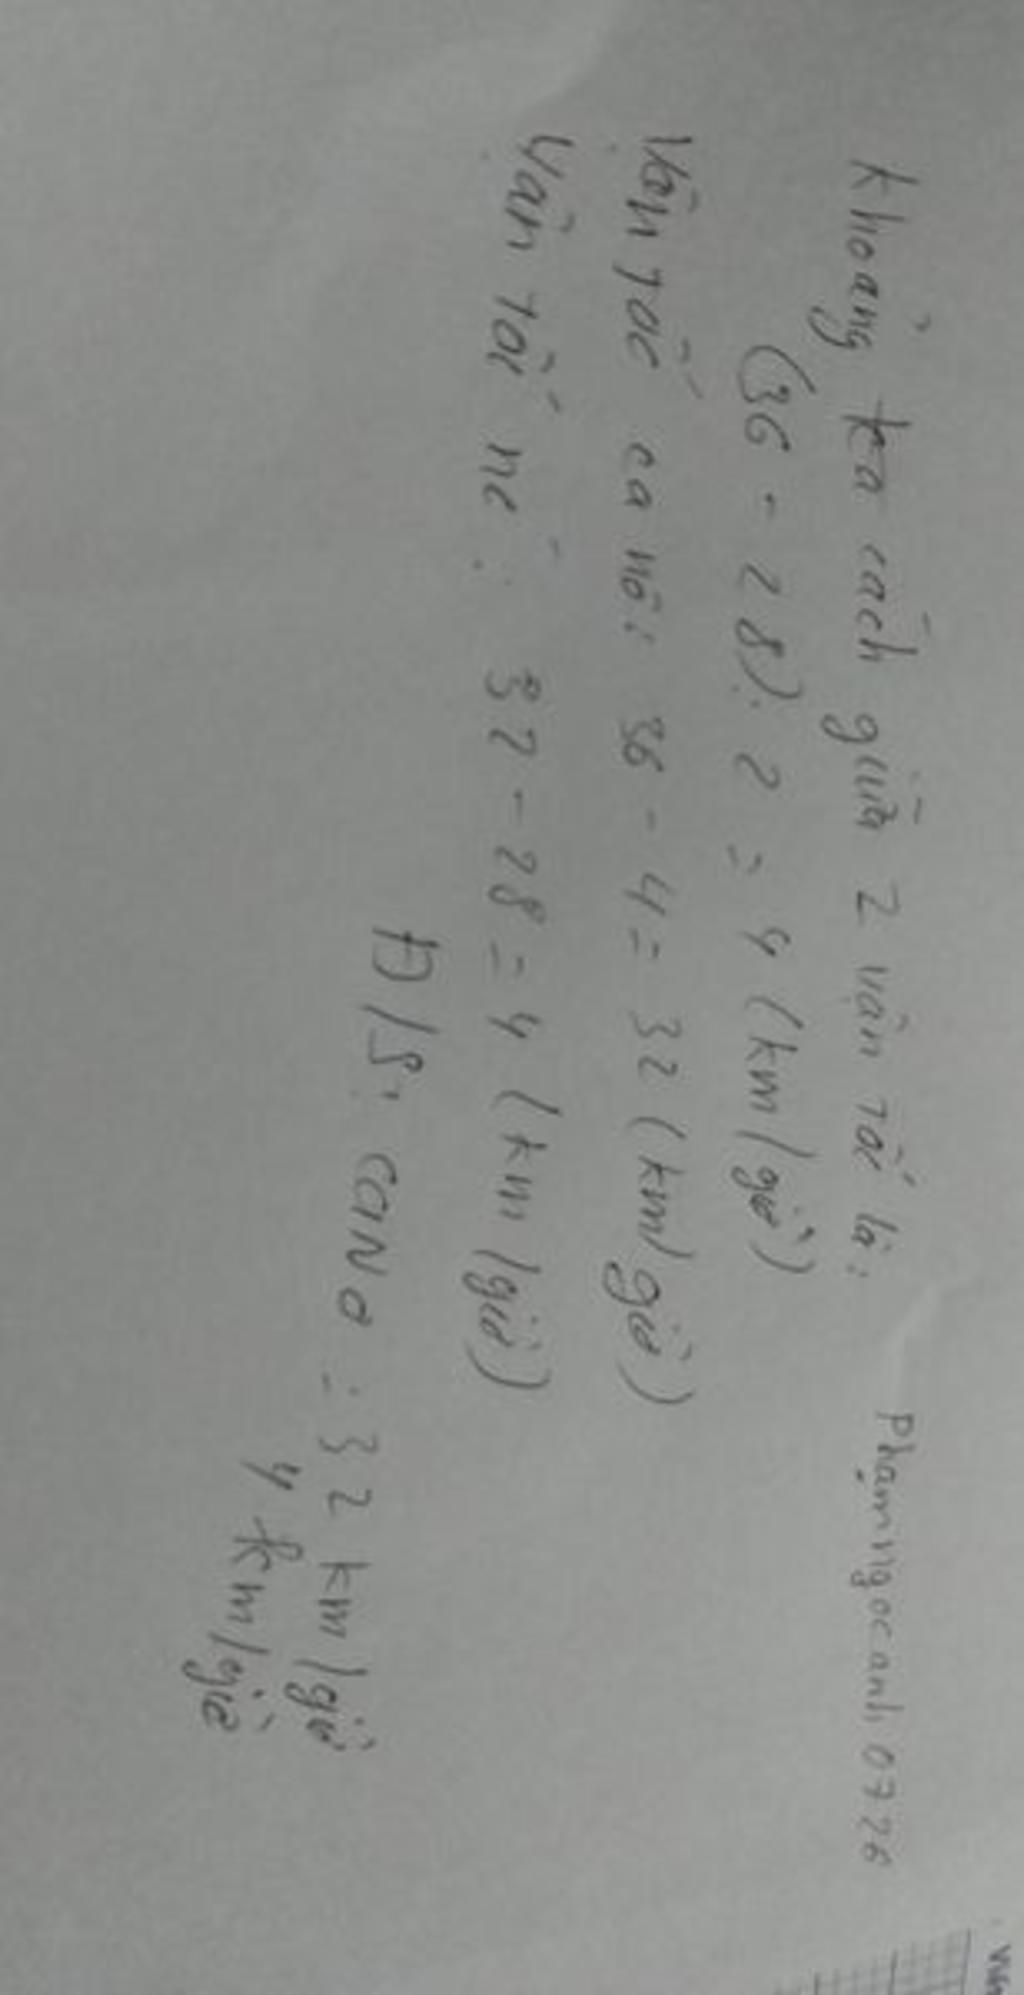 Khoảng ka cách giữa 2 vận tốc là:
Phạmngocanh 0726
(36 - 28): 2 = 4 (km/giờ)
Vận tốc ca nô: 36 - 4 = 32 (km/giờ)
Vận tốc nc: 32 - 28 = 4 (km/giờ)
Đ/S: caNo: 32 km/giờ
4 km/giờ